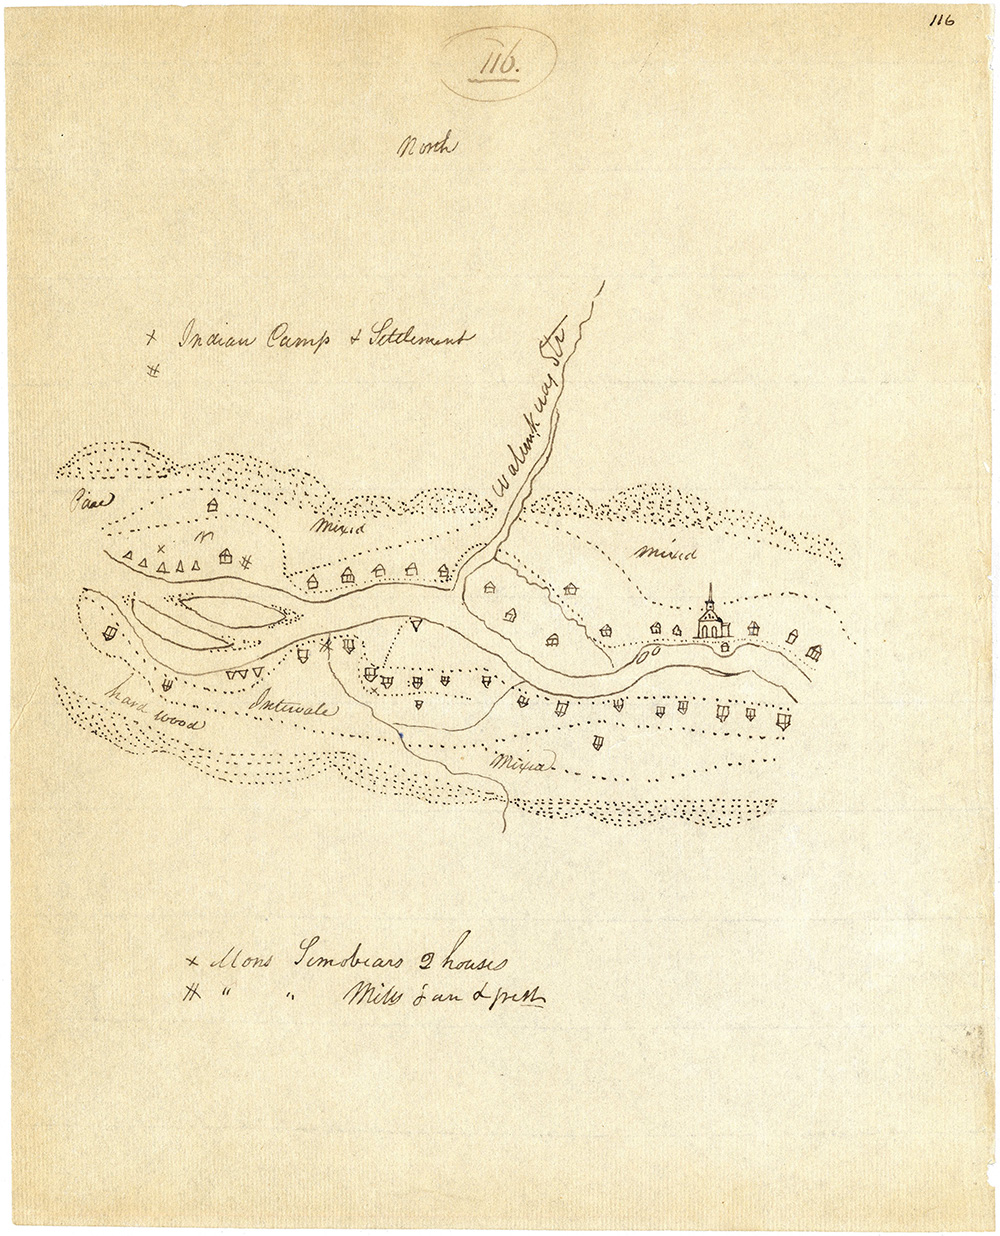 116
116.
North
x Indian Camp & Settlement
#
Walunkuay Str
Pine
Mixed
Mixed
x
#
#
x
hard wood
Intervale
Mixed
x Mons Simobears 2 houses
# " " Mills